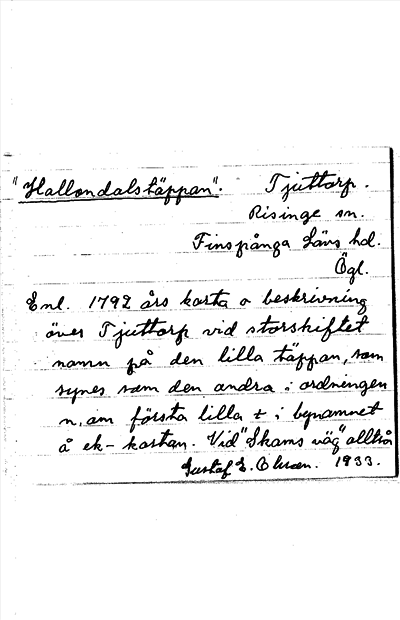 "Hallondalstäppan". Tjuttorp.
Risinge sn.
Finspånga Läns hd.
Ögl.
Enl. 1792 års karta o beskrivning
över Tjuttorp vid storskiftet
namn på den lilla täppan, som
synes som den andra i ordningen
n. om första lilla t i bynamnet
å ek-kartan. Vid "Skams väg" alltså
Gustaf E. Olsson. 1933.